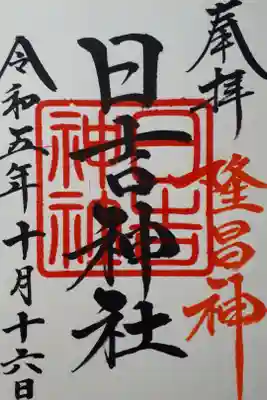 奉拝
隆昌神
日吉神社
日吉神社
令和五年十月十六日